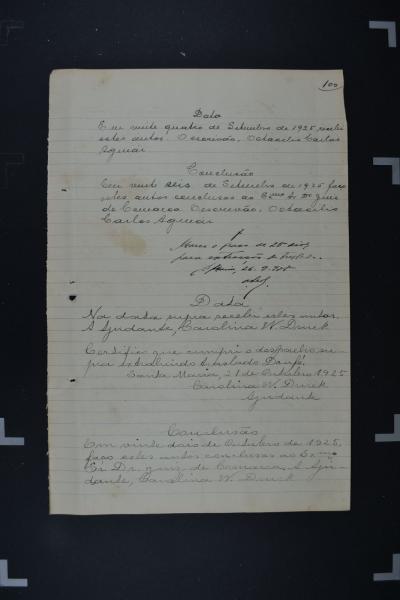 100
Data
Em vinte quatro de Setembro de 1925 recebi
estes autos. O escrivão, Octacilio Carlos
Aguiar
Conclusão
Em vinte seis de Setembro de 1925 faço
estes autos conclusos ao Exmo Sr Dr Juiz
de Comarca. O escrivão, Octacilio
Carlos Aguiar
Marco o prazo de 25 dias
para extracção do
26.9.925
Data
Na data supra recebi estes autos.
A Ajudante, Carolina W. Druck
Certifico que cumpri o despacho su-
pra extrahindo o traslado Dou fé.
Santa Maria, 21 de Outubro 1925
Carolina W. Druck
Ajudante
Conclusão
Em vinte dois de Outubro de 1925,
faço estes autos conclusos ao Exmo
Dr. Juiz de Comarca. A Aju-
dante, Carolina W. Druck